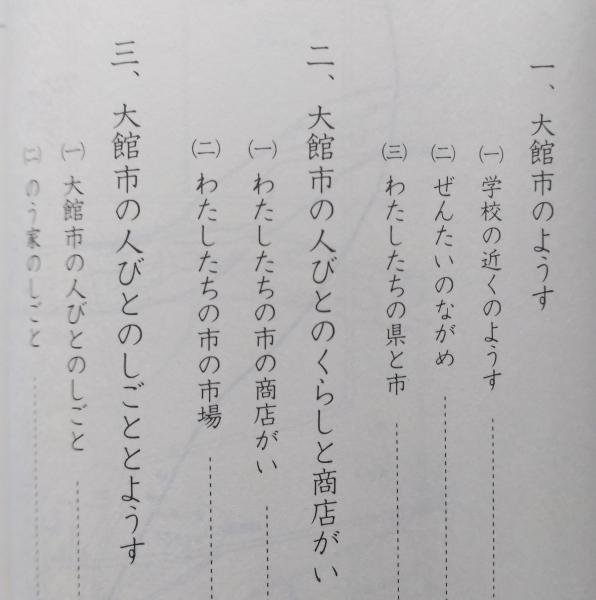 一、大館市のようす
㈠ 学校の近くのようす
㈡ ぜんたいのながめ
㈢ わたしたちの県と市
二、大館市の人びとのくらしと商店がい
㈠ わたしたちの市の商店がい
㈡ わたしたちの市の市場
三、大館市の人びとのしごととようす
㈠ 大館市の人びとのしごと
㈡ のう家のしごと